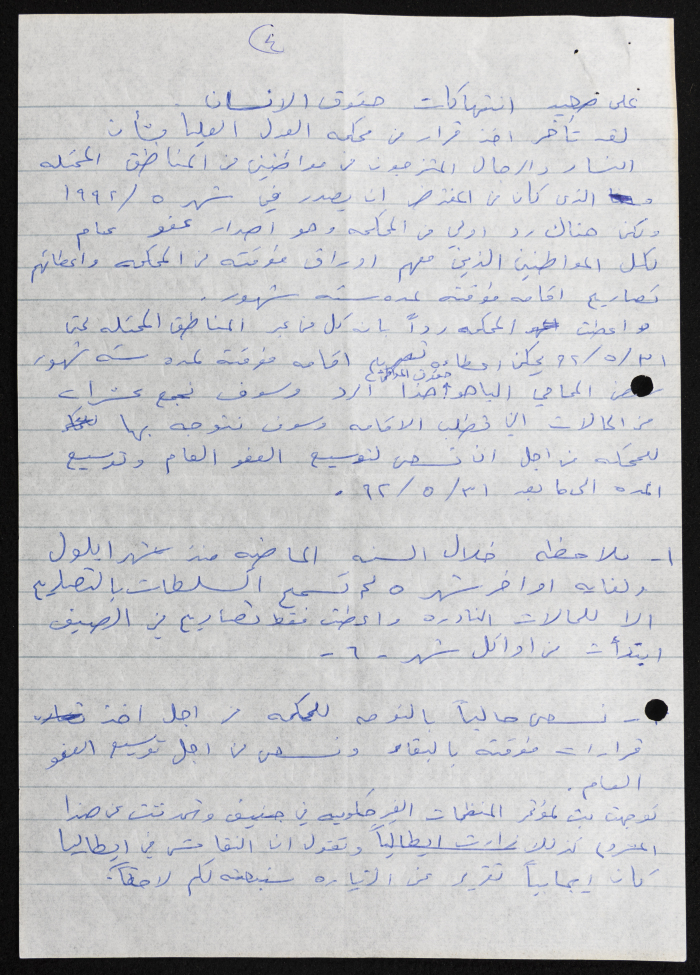 ٤
على صعيد انتهاكات حقوق الانسان
لقد تأخر اخذ قرار من محكمه العدل العليا بشأن
النساء والرجال المتزوجون من مواطنين من المناطق المحتله
الذي كان من المفترض ان يصدر في شهر ٥ / ١٩٩٢
ولكن هناك رد اولي من المحكمه وهو اصدار عفو عام
لكل المواطنين الذين معهم اوراق مؤقته من المحكمه واعطائهم
تصاريح اقامه مؤقته لمده سته شهور.
واعطت المحكمه رداً بان كل من عبر المناطق المحتله حتى
٣١ / ٥ / ٩٢ يمكن اعطاءه تصريح اقامه مؤقتة لمده سته شهور،
حقوق المواطن
المحامي الباهو هذا الرد وسوف نجمع عشرات
من الحالات التي تطلب الاقامه وسوف نتوجه بها
للمحكمه من اجل ان نسعى لتوسيع العفو العام وتوسيع
المده الى ما بعد ٣١ / ٥ / ٩٢ .
١- ملاحظه خلال السنه الماضيه منذ شهر ايلول
ولغايه اواخر شهر ٥ لم تسمح السلطات بالتصاريح
الا للحالات النادره واعطت فقط تصاريح في الصيف
ابتدأت من اوائل شهر - ٦ -
- نسعى حالياً بالتوجه للمحكمه من اجل اخذ
قرارات مؤقته بالبقاء ونسعى من اجل توسيع العفو
العام.
توجهت بثت لمؤتمر المنظمات الغير حكوميه في جنيف وتحدثت عن هذا
المشروع كذلك زارت ايطاليا وتقول ان النقاش في ايطاليا
كان ايجابياً تقرير عن الزياره سنبعثه لكم لاحقاً.